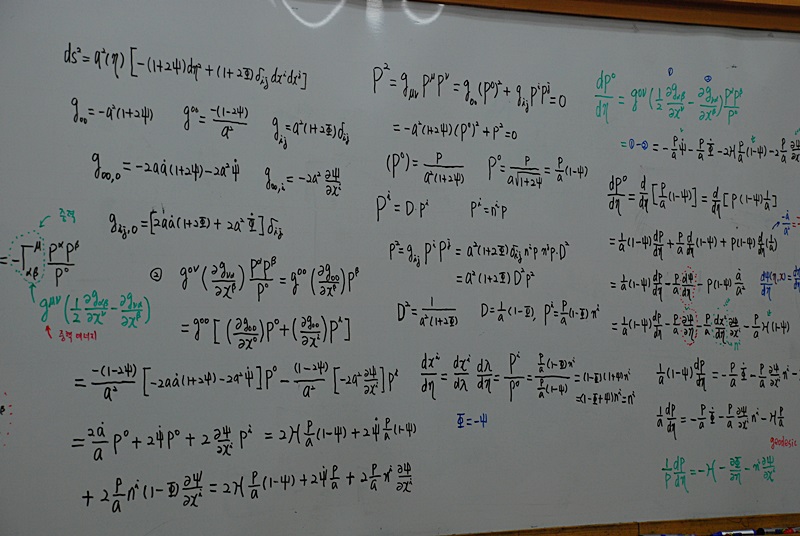 ds² = a²(η) [ -(1+2ψ)dη² + (1+2Φ)δ_ij dxⁱdxʲ ]
g_00 = -a²(1+2ψ)   g⁰⁰ = -(1-2ψ)/a²   g_ij = a²(1+2Φ)δ_ij
g_00,0 = -2aȧ(1+2ψ) - 2a²ψ̇   g_00,i = -2a² ∂ψ/∂xⁱ
g_ij,0 = [2aȧ(1+2Φ) + 2a²Φ̇] δ_ij
중력
= -Γ^μ_αβ P^αP^β/P⁰
g^μν (1/2 ∂g_αβ/∂x^ν - ∂g_νβ/∂x^β)
중력 에너지
② g^0ν (∂g_να/∂x^β) P^αP^β/P⁰ = g⁰⁰ (∂g_00/∂x^β) P^β
= g⁰⁰ [ (∂g_00/∂x⁰)P⁰ + (∂g_00/∂xⁱ)Pⁱ ]
= -(1-2ψ)/a² [ -2aȧ(1+2ψ) - 2a²ψ̇ ] P⁰ - (1-2ψ)/a² [ -2a² ∂ψ/∂xⁱ ] Pⁱ
= 2ȧ/a P⁰ + 2ψ̇P⁰ + 2 ∂ψ/∂xⁱ Pⁱ = 2H P/a (1-ψ) + 2ψ̇ P/a (1-ψ)
+ 2 P/a nⁱ(1-Φ) ∂ψ/∂xⁱ = 2H P/a (1-ψ) + 2ψ̇ P/a + 2 P/a nⁱ ∂ψ/∂xⁱ
P² = g_μν P^μP^ν = g_00 (P⁰)² + g_ij PⁱPʲ = 0
= -a²(1+2ψ)(P⁰)² + P² = 0
(P⁰) = P/a²(1+2ψ)   P⁰ = P/a√(1+2ψ) = P/a (1-ψ)
Pⁱ = D Pⁱ   Pⁱ = nⁱP
P² = g_ij PⁱPʲ = a²(1+2Φ)δ_ij nⁱP nʲP · D²
= a²(1+2Φ) D²P²
D² = 1/a²(1+2Φ)   D = 1/a (1-Φ)   Pⁱ = P/a (1-Φ) nⁱ
dxⁱ/dη = dxⁱ/dλ dλ/dη = Pⁱ/P⁰ = P/a (1-Φ)nⁱ / P/a (1-ψ) = (1-Φ)(1+ψ)nⁱ
= (1-Φ+ψ)nⁱ = nⁱ
Φ = -ψ
① ②
dP⁰/dη = g^0ν (1/2 ∂g_αβ/∂x^ν - ∂g_να/∂x^β) P^αP^β/P⁰
= ①-② = - P/a ψ̇ - P/a Φ̇ - 2H P/a (1-ψ) - 2 P/a
dP⁰/dη = d/dη [ P/a (1-ψ) ] = d/dη [ P(1-ψ) 1/a ]
= 1/a (1-ψ) dP/dη + P/a d/dη (1-ψ) + P(1-ψ) d/dη (1/a)
= 1/a (1-ψ) dP/dη - P/a dψ/dη - P(1-ψ) ȧ/a²
= 1/a (1-ψ) dP/dη - P/a ∂ψ/∂η - P/a dxⁱ/dη ∂ψ/∂xⁱ - P/a H(1-ψ)
nⁱ
1/a (1-ψ) dP/dη = - P/a Φ̇ - P/a ∂ψ/∂xⁱ nⁱ -
1/a dP/dη = - P/a Φ̇ - P/a ∂ψ/∂xⁱ nⁱ - H P/a
geodesic
1/P dP/dη = -H - ∂Φ/∂η - nⁱ ∂ψ/∂xⁱ